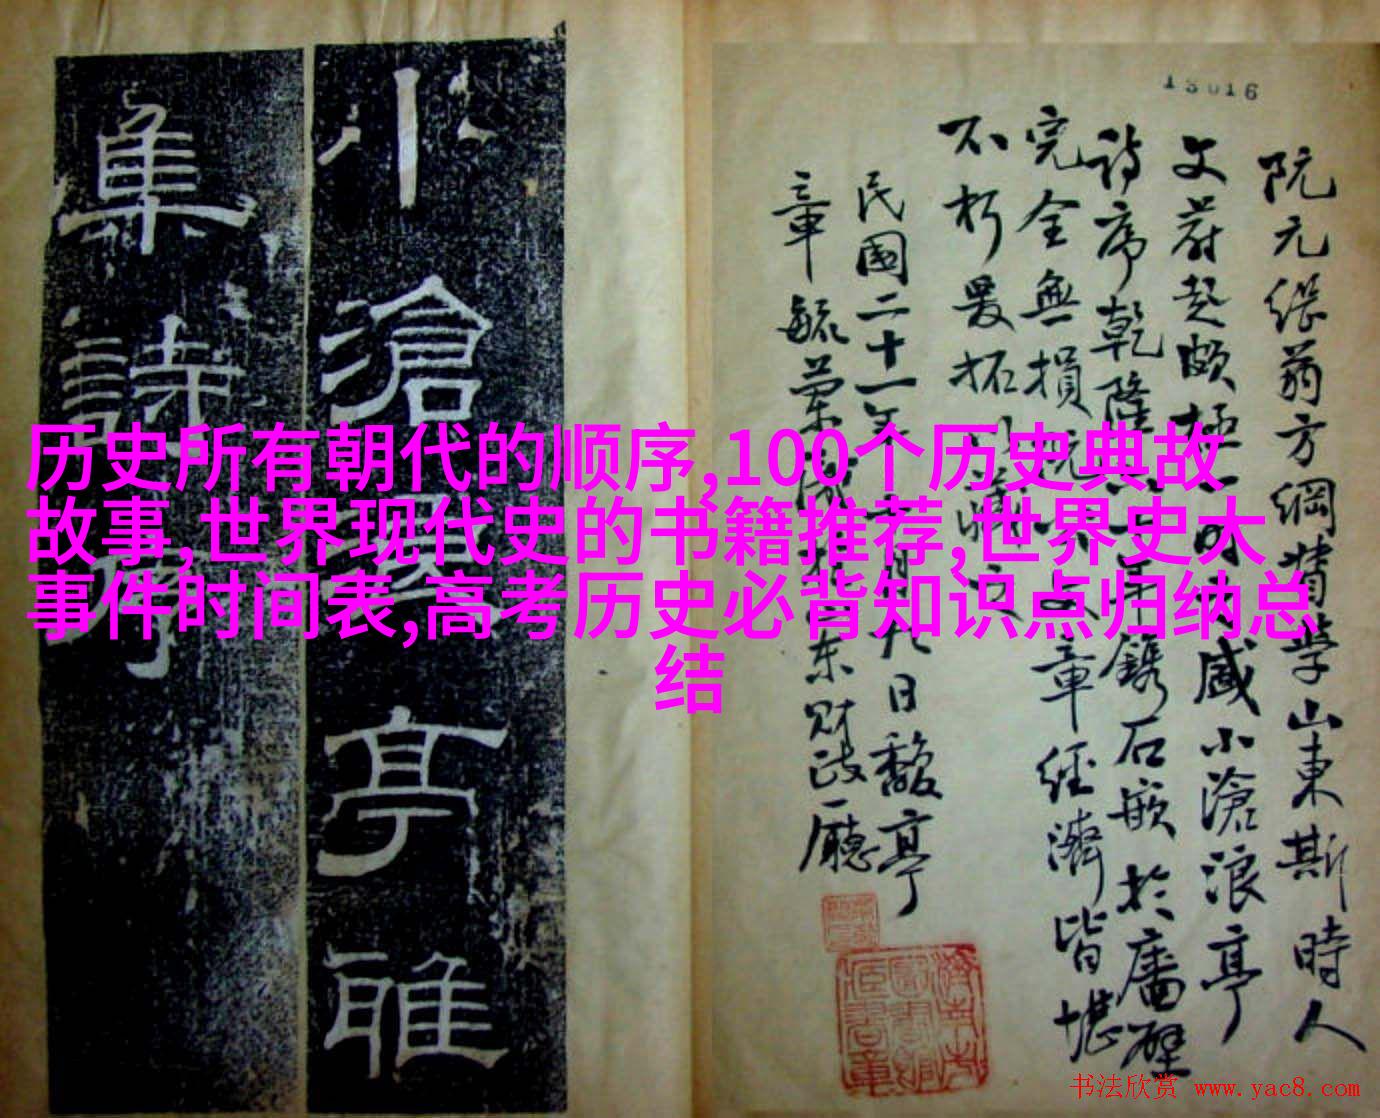 小滄浪亭雅
集詩序
13016
阮元繼翁方綱督學山東斯時人
文蔚起頗極一時之盛小滄浪亭
詩序乾隆
鐫石嵌於廬壁
完全無損
文章經濟皆堪
不朽爰拓以藏之
民國二十一年十一月九日馥亭
章毓蘭識於山東財政廳
历史所有朝代的顺序,100个历史典故
故事,世界现代史的书籍推荐,世界史大
事件时间表,高考历史必背知识点归纳总
结
书法欣赏 www.yac8.com